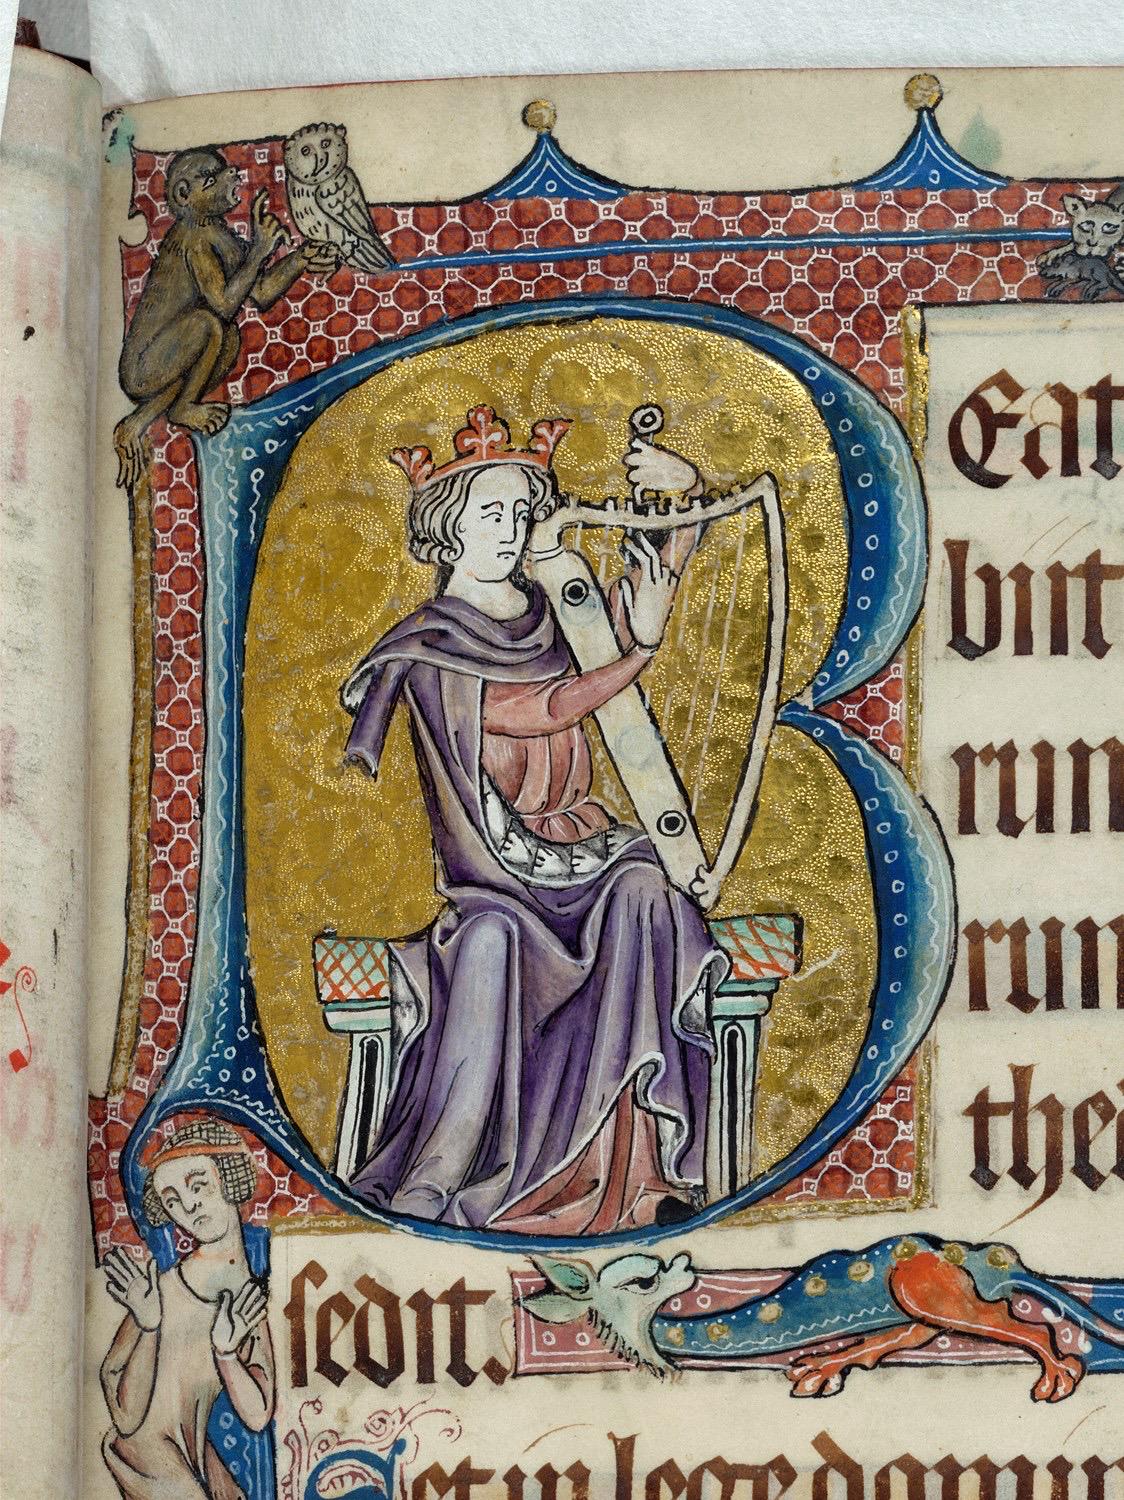 BEat
biit
rum
rum
the
sedit.
Et in lege domin